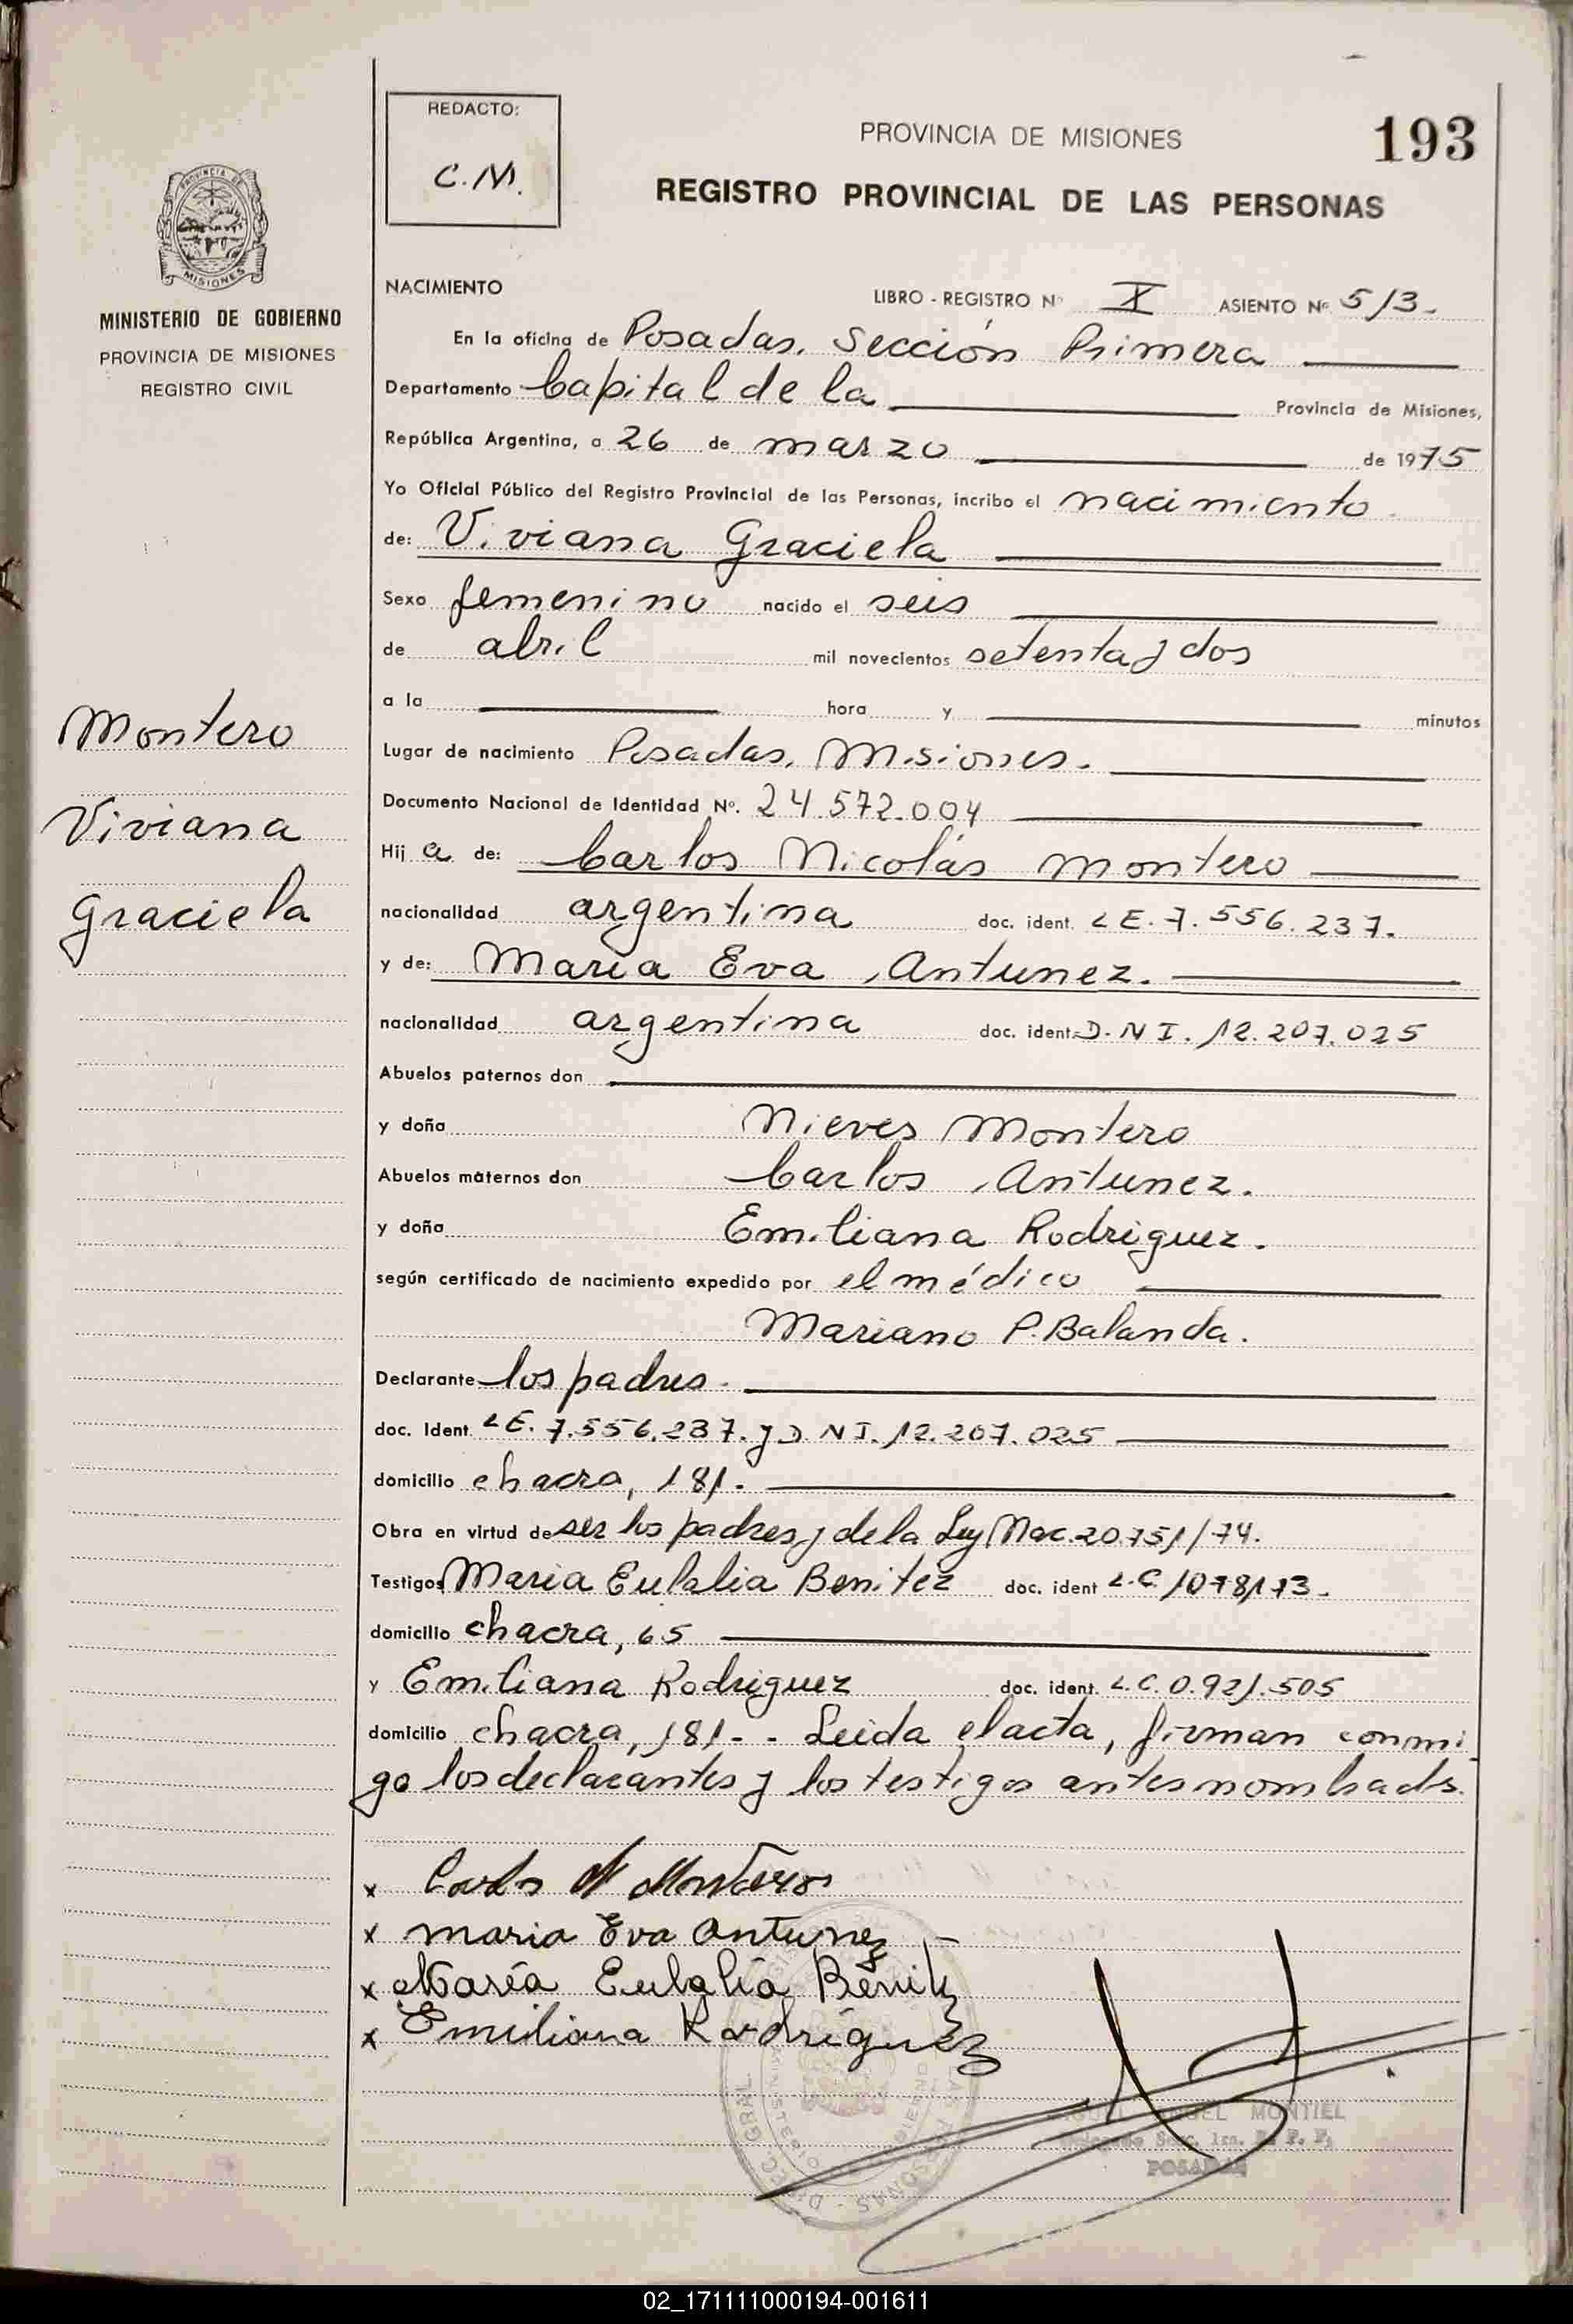 REDACTO:
C.M.
PROVINCIA DE MISIONES
193
REGISTRO PROVINCIAL DE LAS PERSONAS
PROVINCIA DE
MISIONES
MINISTERIO DE GOBIERNO
PROVINCIA DE MISIONES
REGISTRO CIVIL
Montero
Viviana
Graciela
NACIMIENTO
LIBRO - REGISTRO Nº X ASIENTO Nº 513.
En la oficina de Posadas. Sección Primera
Departamento Capital de la Provincia de Misiones,
República Argentina, a 26 de marzo de 1975
Yo Oficial Público del Registro Provincial de las Personas, incribo el nacimiento
de: Viviana Graciela
Sexo femenino nacido el seis
de abril mil novecientos setenta y dos
a la hora y minutos
Lugar de nacimiento Posadas. Misiones.
Documento Nacional de Identidad Nº. 24.572.004
Hij a de: Carlos Nicolás Montero
nacionalidad argentina doc. ident. L E. 7. 556. 237.
y de: Maria Eva Antunez.
nacionalidad argentina doc. ident. D. N I. 12. 207. 025
Abuelos paternos don
y doña Nieves Montero
Abuelos maternos don Carlos Antunez.
y doña Emiliana Rodriguez.
según certificado de nacimiento expedido por el médico
Mariano P. Balanda.
Declarante los padres.
doc. Ident. L E. 7.556.237. y D N I. 12. 207. 025
domicilio chacra, 181.
Obra en virtud de ser los padres y de la Ley Nac. 20.751/74.
Testigos Maria Eulalia Benitez doc. ident L.C. 1078173.
domicilio chacra, 65
y Emiliana Rodriguez doc. ident. L.C. 0.921.505
domicilio chacra, 181.- - Leida el acta, firman conmi
go los declarantes y los testigos antes nombrads.
x Carlos N Montero
x maria Eva Antunez
x María Eulalia Benitz
x Emiliana Rodríguez
ANGEL MONTIEL
POSADAS
02_171111000194-001611